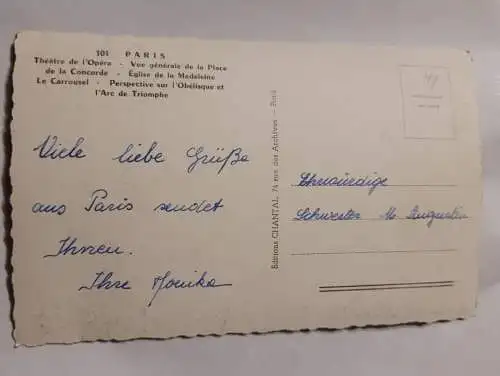 101 PARIS
Théâtre de l'Opéra - Vue générale de la Place
de la Concorde - Église de la Madeleine
Le Carrousel - Perspective sur l'Obélisque et
l'Arc de Triomphe
Viele liebe Grüße
aus Paris sendet
Ihnen.
Ihre Monika
Editions CHANTAL, 74 rue des Archives - Paris
Ehrwürdige
Schwester M. Augustin